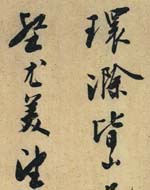 環滁皆山
壑尤美望